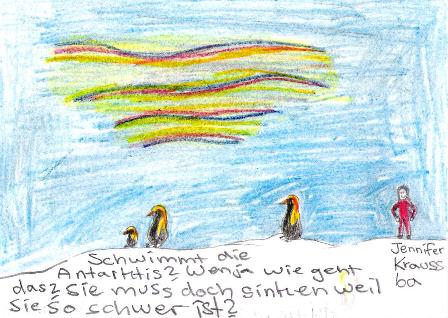 Schwimmt die
Antarktis? Wenja wie geht
das? Sie muss doch sinken weil
Sie so schwer ist?
Jennifer
Krauss
6a